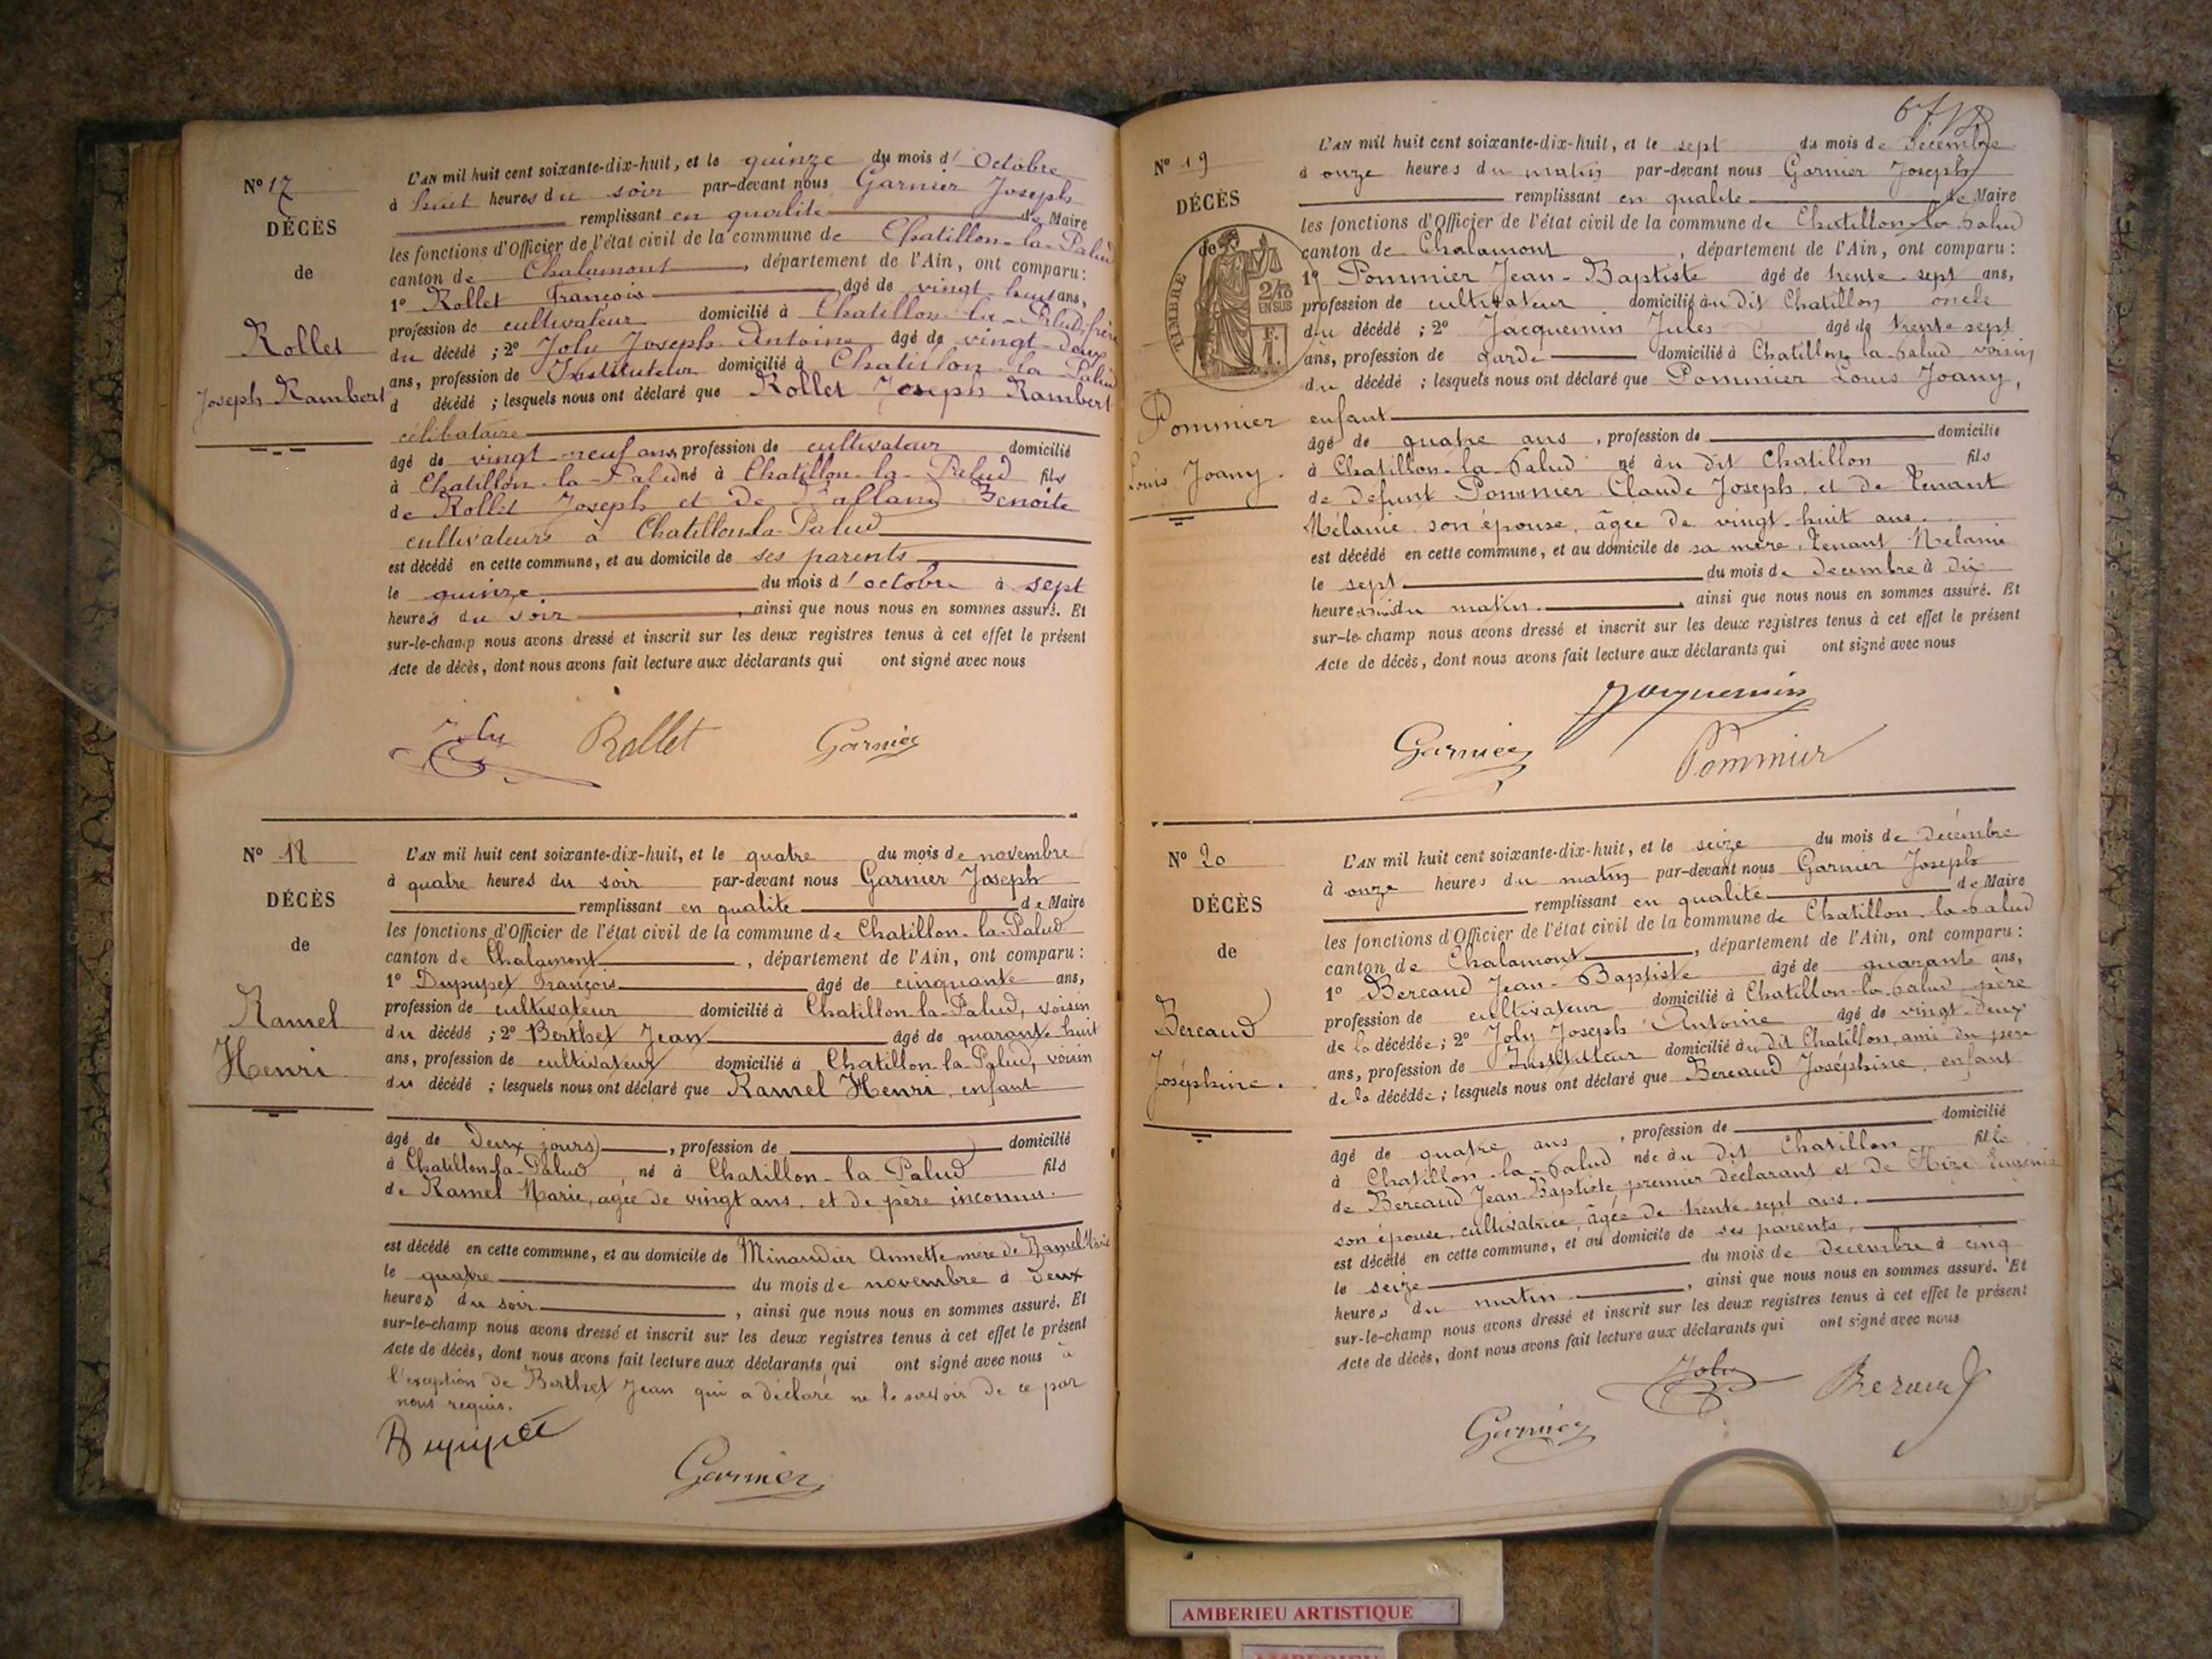 N° 17
DÉCÈS
de
Rollet
Joseph Rambert
L'AN mil huit cent soixante-dix-huit, et le quinze du mois d'Octobre
à huit heures du soir par-devant nous Garnier Joseph
remplissant en qualité de Maire
les fonctions d'Officier de l'état civil de la commune de Chatillon-la-Palud
canton de Chalamont, département de l'Ain, ont comparu:
1° Rollet François âgé de vingt-huit ans,
profession de cultivateur domicilié à Chatillon-la-Palud, frère
du décédé; 2° Joly Joseph Antoine âgé de vingt-deux
ans, profession de Instituteur domicilié à Chatillon-la-Palud
d décédé; lesquels nous ont déclaré que Rollet Joseph Rambert
célibataire
âgé de vingt-neuf ans, profession de cultivateur domicilié
à Chatillon-la-Palud né à Chatillon-la-Palud fils
de Rollet Joseph et de Balland Benoite
cultivateurs à Chatillon-la-Palud
est décédé en cette commune, et au domicile de ses parents
le quinze du mois d'octobre à sept
heures du soir, ainsi que nous nous en sommes assuré. Et
sur-le-champ nous avons dressé et inscrit sur les deux registres tenus à cet effet le présent
Acte de décès, dont nous avons fait lecture aux déclarants qui ont signé avec nous
Joly Rollet Garnier
N° 18
DÉCÈS
de
Ramel
Henri
L'AN mil huit cent soixante-dix-huit, et le quatre du mois de novembre
à quatre heures du soir par-devant nous Garnier Joseph
remplissant en qualité de Maire
les fonctions d'Officier de l'état civil de la commune de Chatillon-la-Palud
canton de Chalamont, département de l'Ain, ont comparu:
1° Dupupet François âgé de cinquante ans,
profession de cultivateur domicilié à Chatillon-la-Palud, voisin
du décédé; 2° Berthet Jean âgé de quarante-huit
ans, profession de cultivateur domicilié à Chatillon-la-Palud, voisin
du décédé; lesquels nous ont déclaré que Ramel Henri, enfant
âgé de deux jours, profession de domicilié
à Chatillon-la-Palud, né à Chatillon-la-Palud fils
de Ramel Marie, agée de vingt ans, et de père inconnu.
est décédé en cette commune, et au domicile de Minaudier Annette mère de Ramel Marie
le quatre du mois de novembre à deux
heures du soir, ainsi que nous nous en sommes assuré. Et
sur-le-champ nous avons dressé et inscrit sur les deux registres tenus à cet effet le présent
Acte de décès, dont nous avons fait lecture aux déclarants qui ont signé avec nous à
l'exception de Berthet Jean qui a déclaré ne le savoir de ce par
nous requis.
Dupupet
Garnier
N° 19
DÉCÈS
de
TIMBRE
2/10
EN SUS
F.
1.
Pommier
Louis Joany.
L'AN mil huit cent soixante-dix-huit, et le sept du mois de Décembre
à onze heures du matin par-devant nous Garnier Joseph
remplissant en qualité de Maire
les fonctions d'Officier de l'état civil de la commune de Chatillon-la-Palud
canton de Chalamont, département de l'Ain, ont comparu:
1° Pommier Jean-Baptiste âgé de trente-sept ans,
profession de cultivateur domicilié au dit Chatillon oncle
du décédé; 2° Jacquemin Jules âgé de trente-sept
ans, profession de garde domicilié à Chatillon-la-Palud, voisin
du décédé; lesquels nous ont déclaré que Pommier Louis Joany,
enfant
âgé de quatre ans, profession de domicilié
à Chatillon-la-Palud né au dit Chatillon fils
de défunt Pommier Claude Joseph et de Tenant
Mélanie son épouse, âgée de vingt-huit ans.
est décédé en cette commune, et au domicile de sa mère, Tenant Mélanie
le sept du mois de décembre à dix
heures du matin, ainsi que nous nous en sommes assuré. Et
sur-le-champ nous avons dressé et inscrit sur les deux registres tenus à cet effet le présent
Acte de décès, dont nous avons fait lecture aux déclarants qui ont signé avec nous
Jacquemin
Garnier Pommier
N° 20
DÉCÈS
de
Bereaud
Joséphine.
L'AN mil huit cent soixante-dix-huit, et le seize du mois de Décembre
à onze heures du matin par-devant nous Garnier Joseph
remplissant en qualité de Maire
les fonctions d'Officier de l'état civil de la commune de Chatillon-la-Palud
canton de Chalamont, département de l'Ain, ont comparu:
1° Bereaud Jean-Baptiste âgé de quarante ans,
profession de cultivateur domicilié à Chatillon-la-Palud, père
de la décédée; 2° Joly Joseph Antoine âgé de vingt-deux
ans, profession de Instituteur domicilié au dit Chatillon, ami du père
de la décédée; lesquels nous ont déclaré que Bereaud Joséphine, enfant
âgé de quatre ans, profession de domicilié
à Chatillon-la-Palud née au dit Chatillon fille
de Bereaud Jean-Baptiste premier déclarant et de Eugénie
son épouse, cultivatrice, âgée de trente-sept ans,
est décédé en cette commune, et au domicile de ses parents,
le seize du mois de décembre à cinq
heures du matin, ainsi que nous nous en sommes assuré. Et
sur-le-champ nous avons dressé et inscrit sur les deux registres tenus à cet effet le présent
Acte de décès, dont nous avons fait lecture aux déclarants qui ont signé avec nous
Joly Bereaud
Garnier
AMBERIEU ARTISTIQUE
AMBERIEU